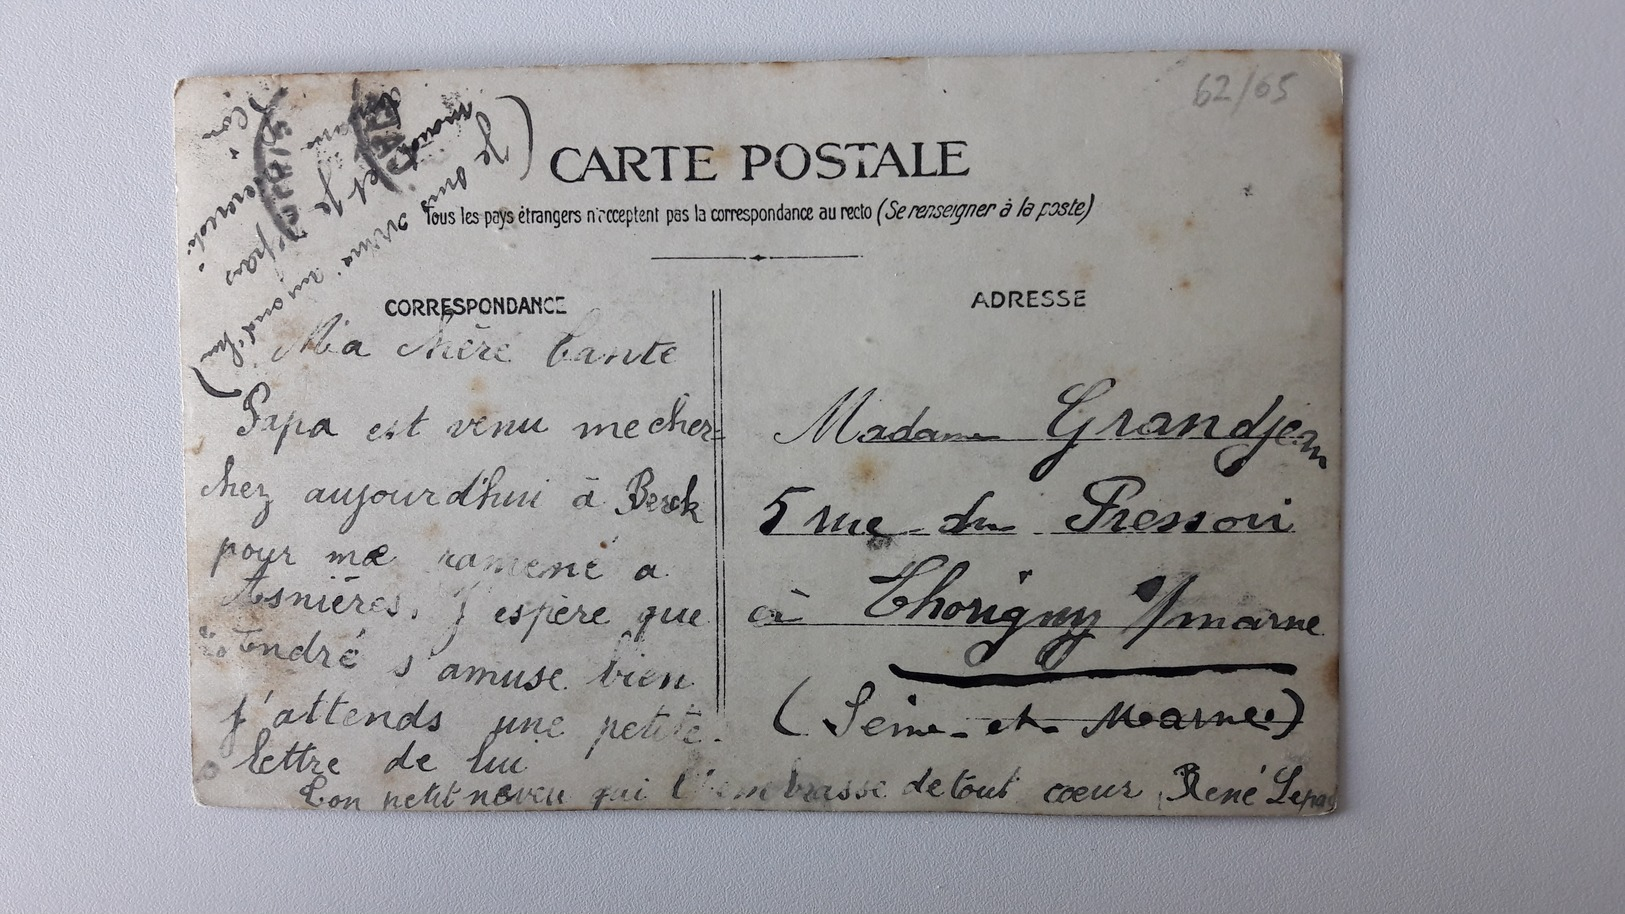 62/65
CARTE POSTALE
Tous les pays étrangers n'acceptent pas la correspondance au recto (Se renseigner à la poste)
CORRESPONDANCE
Ma chère tante
Papa est venu me cher-
chez aujourd'hui à Berck
pour me ramené a
Asnières. J'espère que
André s'amuse bien
j'attends une petite
lettre de lui
Ton petit neveu qui t'embrasse de tout coeur René Lepas
ADRESSE
Madame Grandjean
5 rue du Pressoir
à Thorigny s/marne
(Seine-et-Marne)
(Je suis